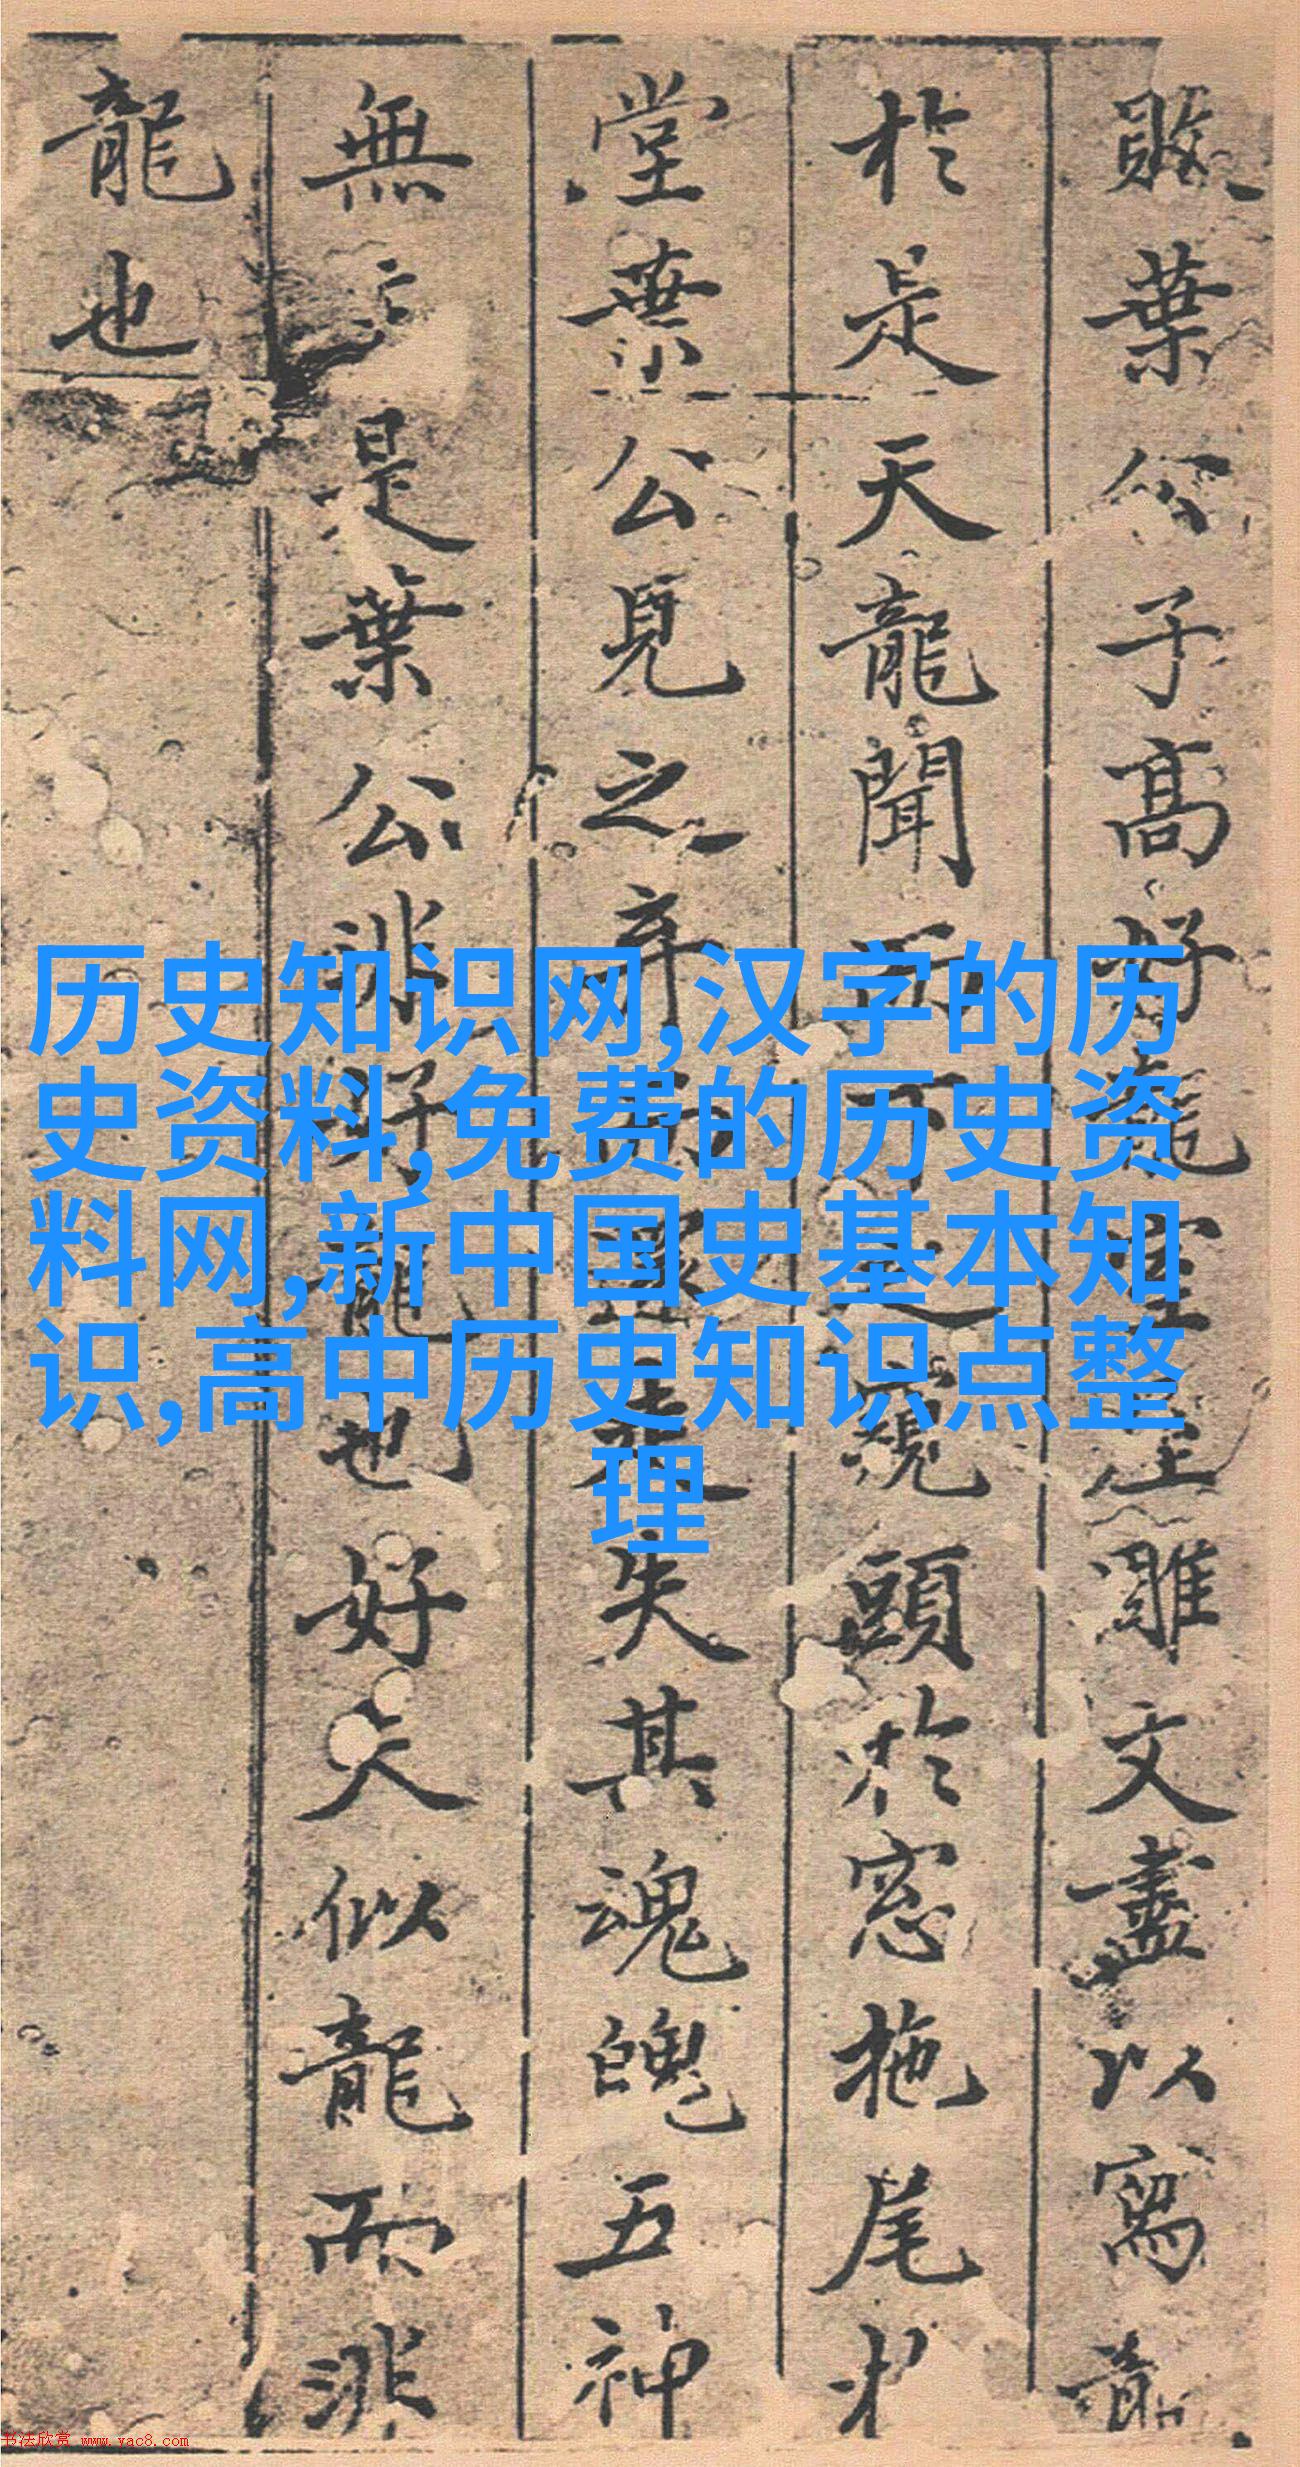 敗葉公子髙好龍室雕文盡以寫龍
於是天龍聞而下之窺頭於窓拖尾於
堂葉公見之弃而還走失其魂魄五神
無主是葉公非好龍也好夫似龍而非
龍也
历史知识网,汉字的历
史资料,免费的历史资
料网,新中国史基本知
识,高中历史知识点整
理
书法欣赏 www.yac8.com